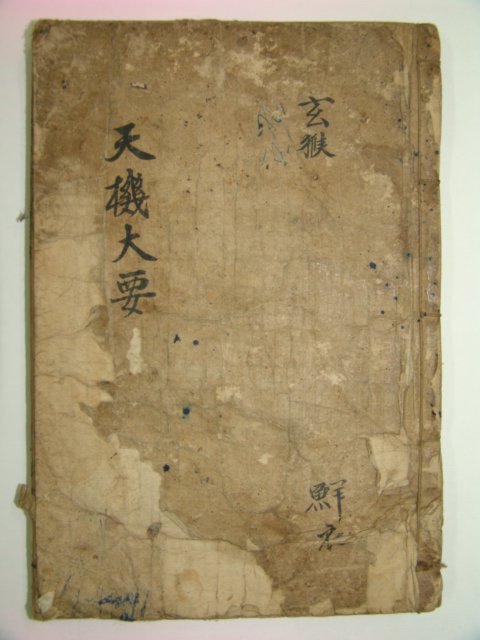 天機大要
玄猴
鮮